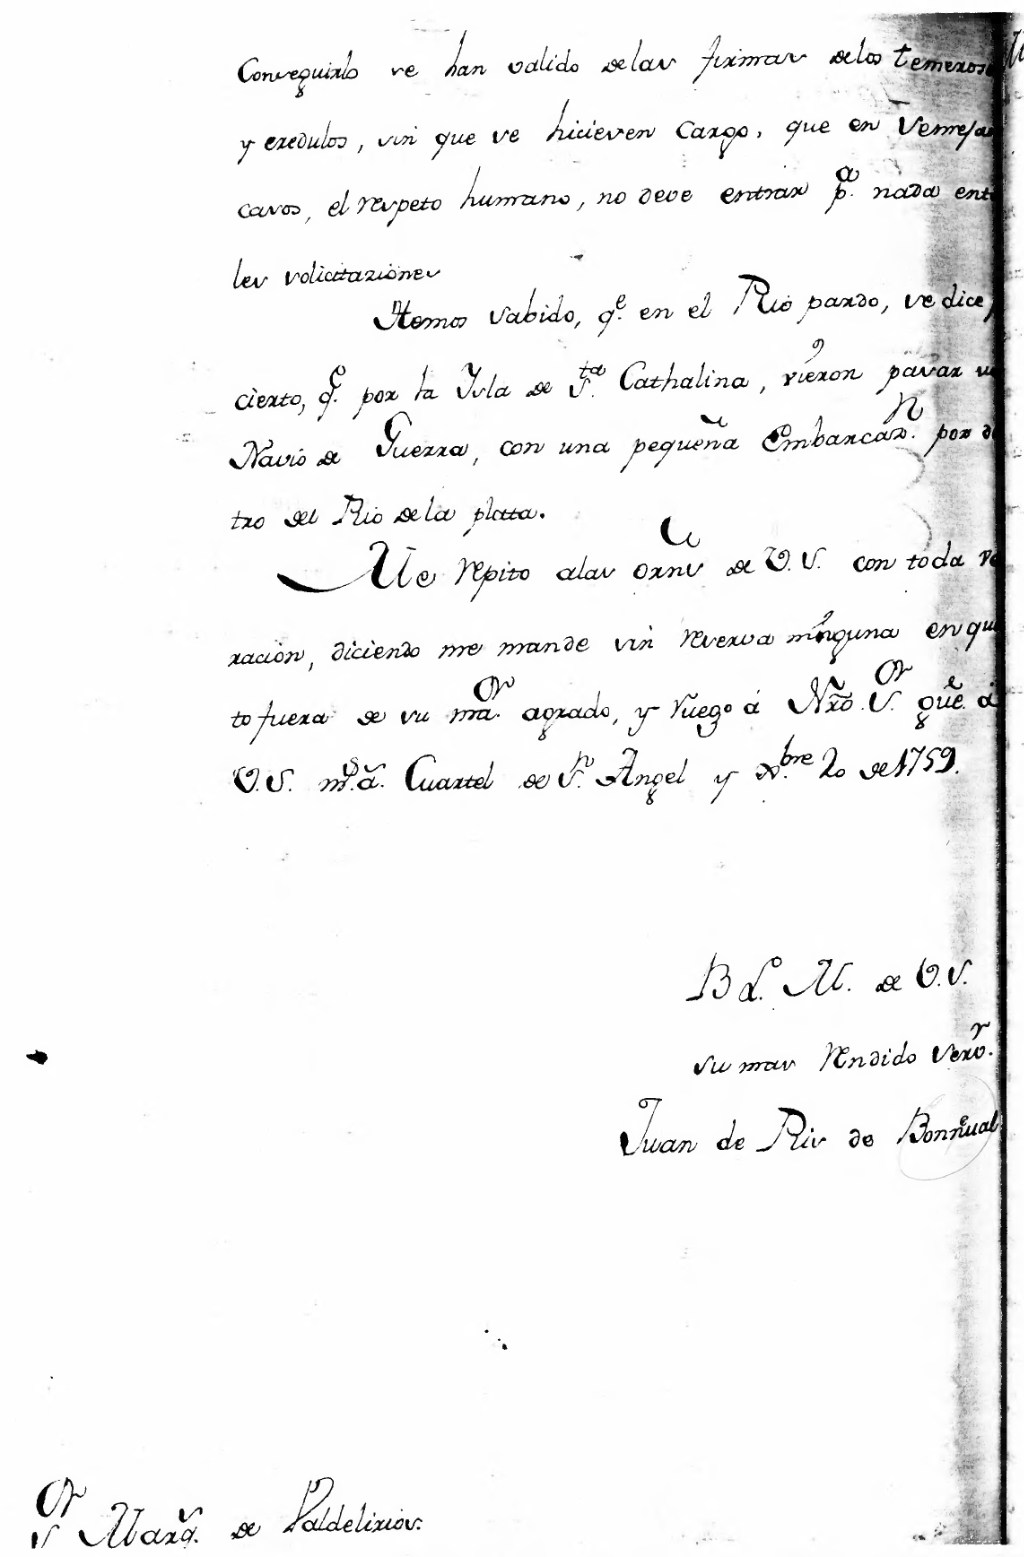 Conseguirlo se han valido delas firmas delos temeros
y credulos, sin que se hiciesen cargo, que en Semeja
casos, el respeto humano, no deve entrar p.ª nada en
les solicitaziones
Hemos sabido, q.e en el Rio pardo, se dice
cierto, q.e por la Ysla de S.ta Cathalina, vieron pasar
Navio de Guerra, con una pequeña Embarcaz.n por
tro del Rio de la plata.
Me repito alas orns de V. S. con toda
racion, diciendo me mande sin reserva ninguna en qu
to fuera de su ma.or agrado, y ruego á Nro. S.or gue. á
V. S. m.s a.s Cuartel de S.n Angel y X.bre 20 de 1759.
B L.o M. de V. S.
su mas rendido Servo.r
Juan de Ris de Bonneual
S.or Marq.s de Valdelirios.